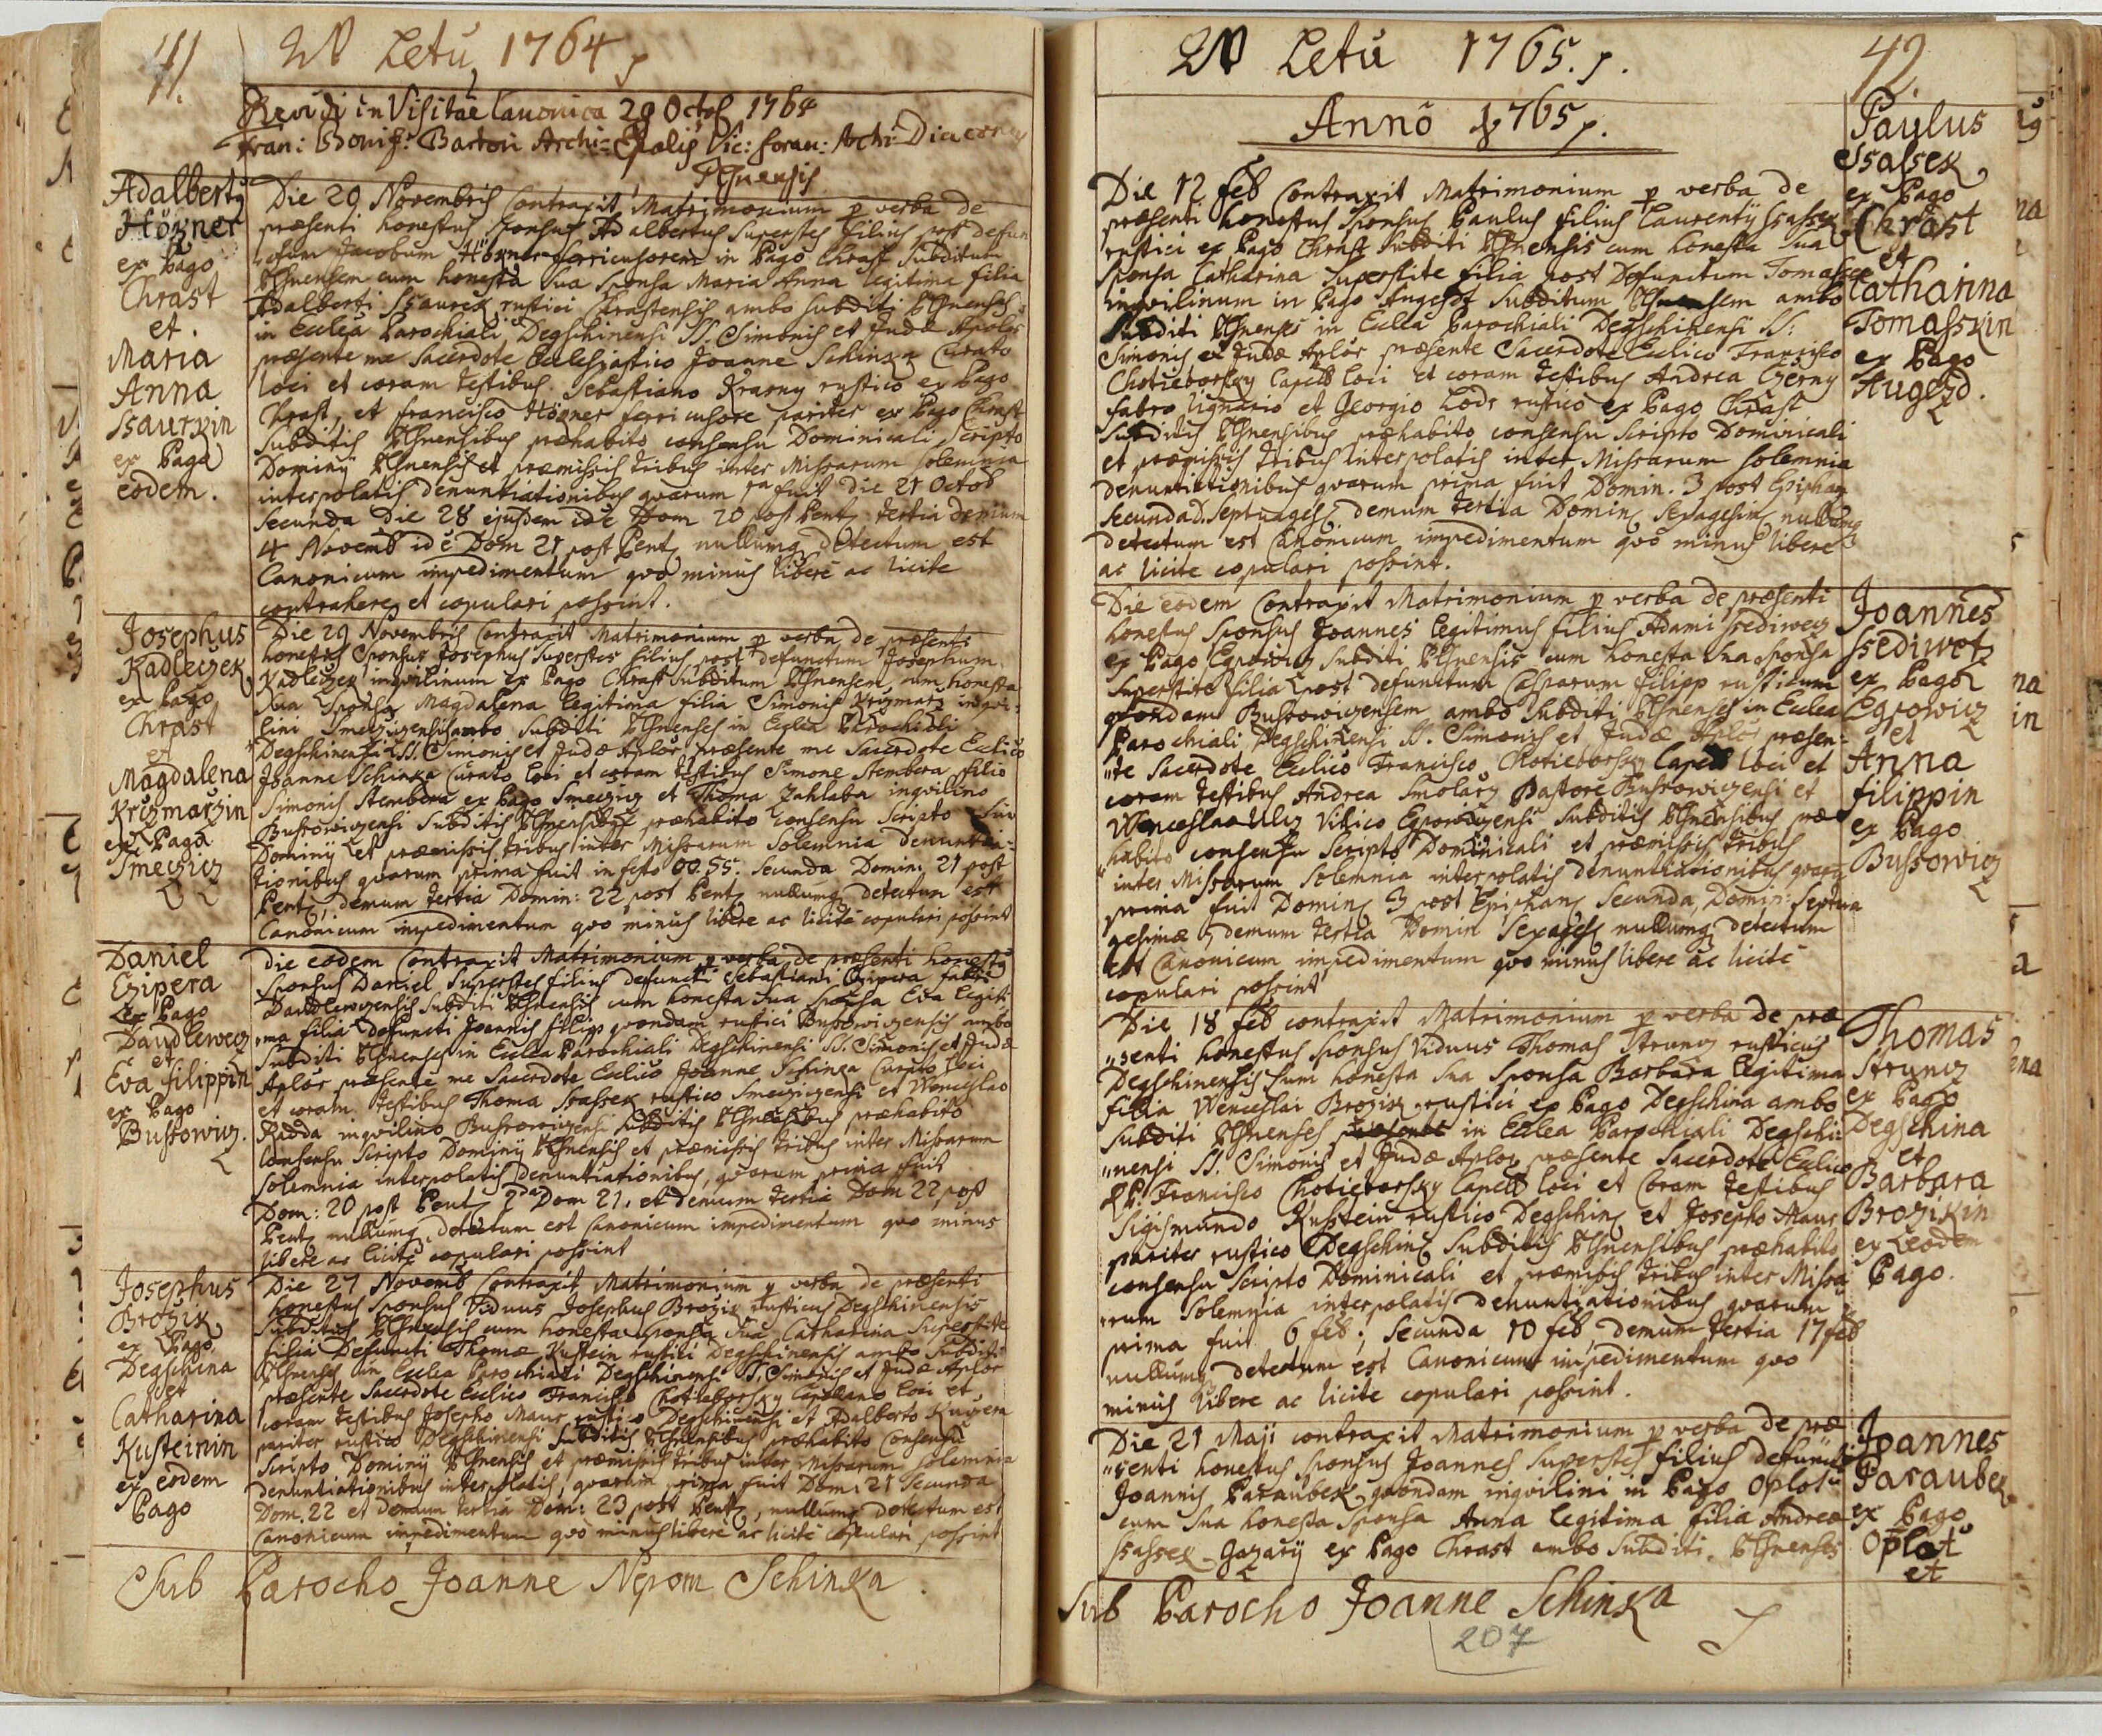 41.
W Letu 1764
Revidi in Visitãe Canonica 29 Octob 1764
Fran: Bonif: Bartoň Archi-Epalis Vic: foran: Archi-Diaconus
Plsnensis
Adalbertg
Högner
ex Pago
Chrast
et.
Maria
Anna
Ssaurkin
ex Pago
eodem.
Die 20 Novembris Contraxit Matrimonium p verba de
præsenti honestus Sponsus Adalbertus Superstes filius post defun
ctum Jacobum Högner ferricusorem in Pago Chrast Subditum
Plsnensem cum honesta sua Sponsa Maria Anna legitima filia
Adalberti Ssaurek rustici Chrastensis ambo subditi Plsnenses
in Ecclea Parochiali Degschinensi SS. Simonis et Judæ Apolor
præsente me Sacerdote Ecclesiastico Joanne Schinka Curato
loci et coram testibus Sebastiano Krasny rustico ex Pago
Chrast, et Francisco Högner ferricusore pariter ex Pago Chrast
Subditis Plsnensibus præhabito consensu Dominicali Scripto
Dominÿ Plsnensis et præmissis tribus inter Missarum solemnia
interpolatis denuntiationibus quarum 1a fuit Die 21 Octob
Secunda Die 28 ejusdem idê Dom 20 post Pent tertia demum
4 Novemb idê Dom 21 post Pent nullumq detectum est
Canonicum impedimentum quo minus libere ac licite
contrahere et copulari possint.
Josephus
Kadleczek
ex Pago
Chrast
et
Magdalena
Krizmarzin
ex Pago
Smeczicz
Die 29 Novembris Contraxit Matrimonium p verba de præsenti
honestus Sponsus Josephus Superstes filius post defunctum Josephum
Kadleczek inquilinum ex Pago Chrast Subditum Plsnensem cum honesta
sua Sponsa Magdalena legitima filia Simonis Krizmarz inqui-
lini Smecziczensis ambo Subditi Plsnenses in Ecclea Parochiali
Degschinensi SS. Simonis et Judæ Aplor præsente me Sacerdote Ecclico
Joanne Schinka Curato loci et coram testibus Simone Stembera filio
Simonis Stembera ex Pago Smeczicz et Thoma Zahlaba inquilino
Bussowiczensi Subditis Plsnensibus præhabito consensu Scripto
Dominÿ et præmissis tribus inter Missarum Solemnia denuntia-
tionibus quarum prima fuit in festo OO.SS. Secunda Domin: 21 post
Pent, demum tertia Domin: 22 post Pent nullumq detectum est
Canonicum impedimentum quo minus libere ac licite copulari possint
Daniel
Czipera
ex Pago
Daudlewecz
et
Eva Filippin
ex Pago
Bussowicz.
Die eodem Contraxit Matrimonium p verba de præsenti honestg
Sponsus Daniel Superstes filius defuncti Sebastiani Czipera fabri
Daudlewczensis Subditi Plsnensis cum honesta sua Sponsa Eva legiti-
ma filia defuncti Joannis Filip quondam rustici Bussowiczensis ambo
Subditi Plsnenses in Ecclea Parochiali Degschinensi SS. Simonis et Judæ
Aplor præsente me Sacerdote Ecclico Joanne Schinka Curato loci
et coram testibus Thoma Ssassek rustico Smecziczensi et Wenceslao
Radda inquilino Bussowiczensi Subditis Plsnensibus præhabito
Consensu Scripto Dominÿ Plsnensis et præmissis tribus inter Missarum
Solemnia interpolatis denuntiationibus, quarum prima fuit
Dom: 20 post Pent 2da Dom 21. et demum tertia Dom 22 post
Pent nullumq detectum est Canonicum impedimentum quo minus
libere ac licite copulari possint
Josephus
Brozik
ex Pago
Degschina
et
Catharina
Kusteinin
ex eodem
Pago
Die 27 Novemb Contraxit Matrimonium p verba de præsenti
honestus Sponsus Viduus Josephus Brozik rusticus Degschinensis
Subditus Plsnensis cum honesta Sponsa Sua Catharina Superstite
filia Defuncti Thomæ Kustein rustici Degschinensis ambo Subditi
Plsnenses in Ecclea Parochiali Degschinensi SS. Simonis et Judæ Aplor
præsente Sacerdote Ecclico Francisco Chotieborsky Capellano loci et
coram testibus Josepho Maur rustico Degschinensi et Adalberto Kuczera
pariter rustico Degschinensi Subditis Plsnensibus præhabito Consensu
Scripto Dominÿ Plsnensis et præmissis tribus inter Missarum solemnia
denuntiationibus interpolatis, quarum prima fuit Dom: 21 Secunda
Dom. 22 et demum tertia Dom: 23 post Pent, nullumq detectum est
Canonicum impedimentum quo minus libere ac licite copulari possint
Sub Parocho Joanne Nepom Schinka.
W Letu 1765.
42
Anno 1765
Paulus
Ssassek
ex Pago
Chrast
et
Catharina
Tomasskin
ex Pago
Augezd.
Die 12 Feb Contraxit Matrimonium p verba de
præsenti honestus Sponsus Paulus filius Laurentÿ Ssassek
rustici ex Pago Chrast Subditi Plsnensis cum honesta sua
Sponsa Catharina Superstite filia post Defunctum Tomassek
inquilinum in Pago Augezd Subditum Plsnensem ambo
Subditi Plsnenses in Ecclea Parochiali Degschinensi SS:
Simonis et Judæ Aplor præsente Sacerdote Ecclico Francisco
Chotieborsky Capell loci et coram testibus Andrea Czerny
fabro lignario et Georgio Lodr rustico ex Pago Chrast
Subditis Plsnensibus præhabito consensu Scripto Dominicali
et præmissis tribus interpolatis inter Missarum solemnia
denuntiationibus quarum prima fuit Domin. 3 post Epiphan
Secunda D. Septuages demum tertia Domin Sexagesim nullumq
detectum est Canonicum impedimentum quo minus libere
ac licite copulari possint.
Joannes
Ssediwetz
ex Pago
Egpowicz
et
Anna
Filippin
ex Pago
Bussowicz
Die eodem Contraxit Matrimonium p verba de præsenti
honestus Sponsus Joannes legitimus filius Adami Ssediwecz
ex Pago Egpowicz Subditi Plsnensis cum honesta sua Sponsa
Superstite filia post defunctum Casparum Filipp rusticum
quondam Bussowiczensem ambo Subditi Plsnenses in Ecclea
Parochiali Degschinensi SS. Simonis et Judæ Aplor præsen-
te Sacerdote Ecclico Francisco Chotieborsky Capell loci et
coram testibus Andrea Smolarz Pastore Bussowiczensi et
Wenceslao Ulcz Vilico Egpowiczensi Subditis Plsnensibus præ
habito consensu Scripto Dominicali et præmissis tribus
inter Missarum Solemnia interpolatis denuntiationibus quarum
prima fuit Domin 3 post Epiphan Secunda, Domin: Septua
gesimæ, demum tertia Domin Sexages nullumq detectum
est Canonicum impedimentum quo minus libere ac licite
copulari possint
Thomas
Strunz
ex Pago
Degschina
et
Barbara
Brozikin
ex eodem
Pago.
Die 18 Feb contraxit Matrimonium p verba de præ
senti honestus Sponsus Viduus Thomas Strunz rusticus
Degschinensis cum honesta sua Sponsa Barbara legitima
filia Wenceslai Brozik rustici ex Pago Degschina ambo
Subditi Plsnenses in Ecclea Parochiali Degschi-
nensi SS. Simonis et Judæ Aplor præsente Sacerdote Ecclico
Francisco Chotieborsky Capell loci et Coram testibus
Sigismundo Kustein rustico Degschin et Josepho Maur
pariter rustico Degschin Subditis Plsnensibus præhabito
consensu Scripto Dominicali et præmissis tribus inter Missa
rum Solemnia interpolatis denuntiationibus quarum
prima fuit 6 Feb; Secunda 10 Feb, demum tertia 17 Feb
nullumq detectum est Canonicum impedimentum quo
minus libere ac licite copulari possint.
Joannes
Paraubek
ex Pago
Oplot
et
Die 21 Maji contraxit Matrimonium p verba de præ
senti honestus Sponsus Joannes Superstes filius defuncti
Joannis Paraubek quondam inquilini in Pago Oplot
cum sua honesta Sponsa Anna legitima filia Andreæ
Ssassek Gazarÿ ex Pago Chrast ambo Subditi Plsnenses
Sub Parocho Joanne Schinka
207